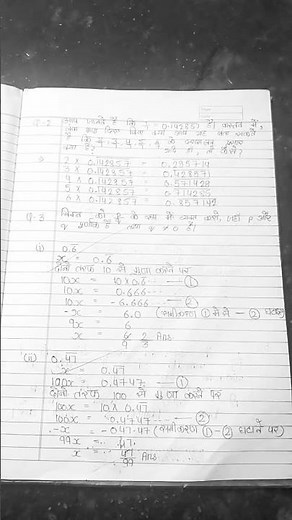 Q.2 आप जानते हैं कि 1/7 = 0.142857 है। वास्तव में,
2 × 0.142857 = 0.285714
3 × 0.142857 = 0.428571
4 × 0.142857 = 0.571428
5 × 0.142857 = 0.714285
6 × 0.142857 = 0.857142
Q.3 निम्न को p/q के रूप में व्यक्त करो, जहाँ p और
q पूर्णांक है तथा q ≠ 0 है।
(i) 0.6
x = 0.6
दोनों तरफ 10 से गुणा करने पर
10x = 10×0.6 — ①
10x = 0.666
10x = 6.666 — ②
-x = 6.0 (समीकरण ① में से — ② घटाने
9x = 6
x = 6/9 2/3 Ans
(ii) 0.47
x = 0.47
100x = 0.4747 — ①
दोनों तरफ 100 से गुणा करने पर
100x = 10×0.47
100x = 0.4747 — ②
-x = -047.47 (समीकरण ①-② घटाने पर)
99x = 47.
x = 47/99 Ans